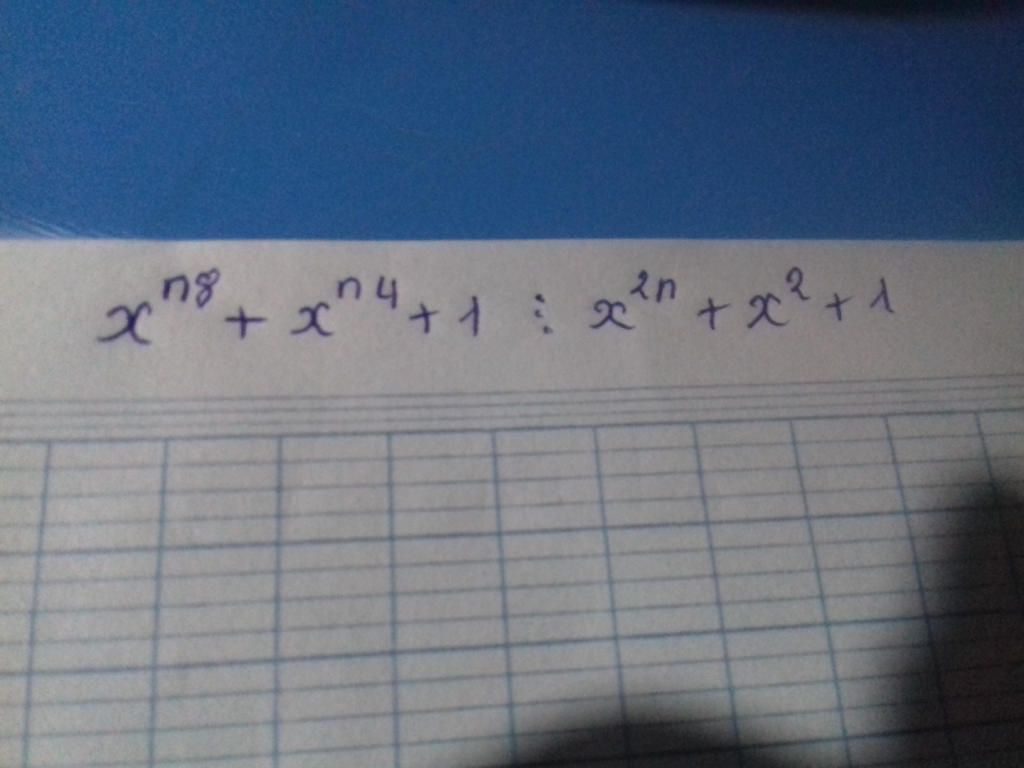 x^{n8} + x^{n4} + 1 ⋮ x^{2n} + x^2 + 1